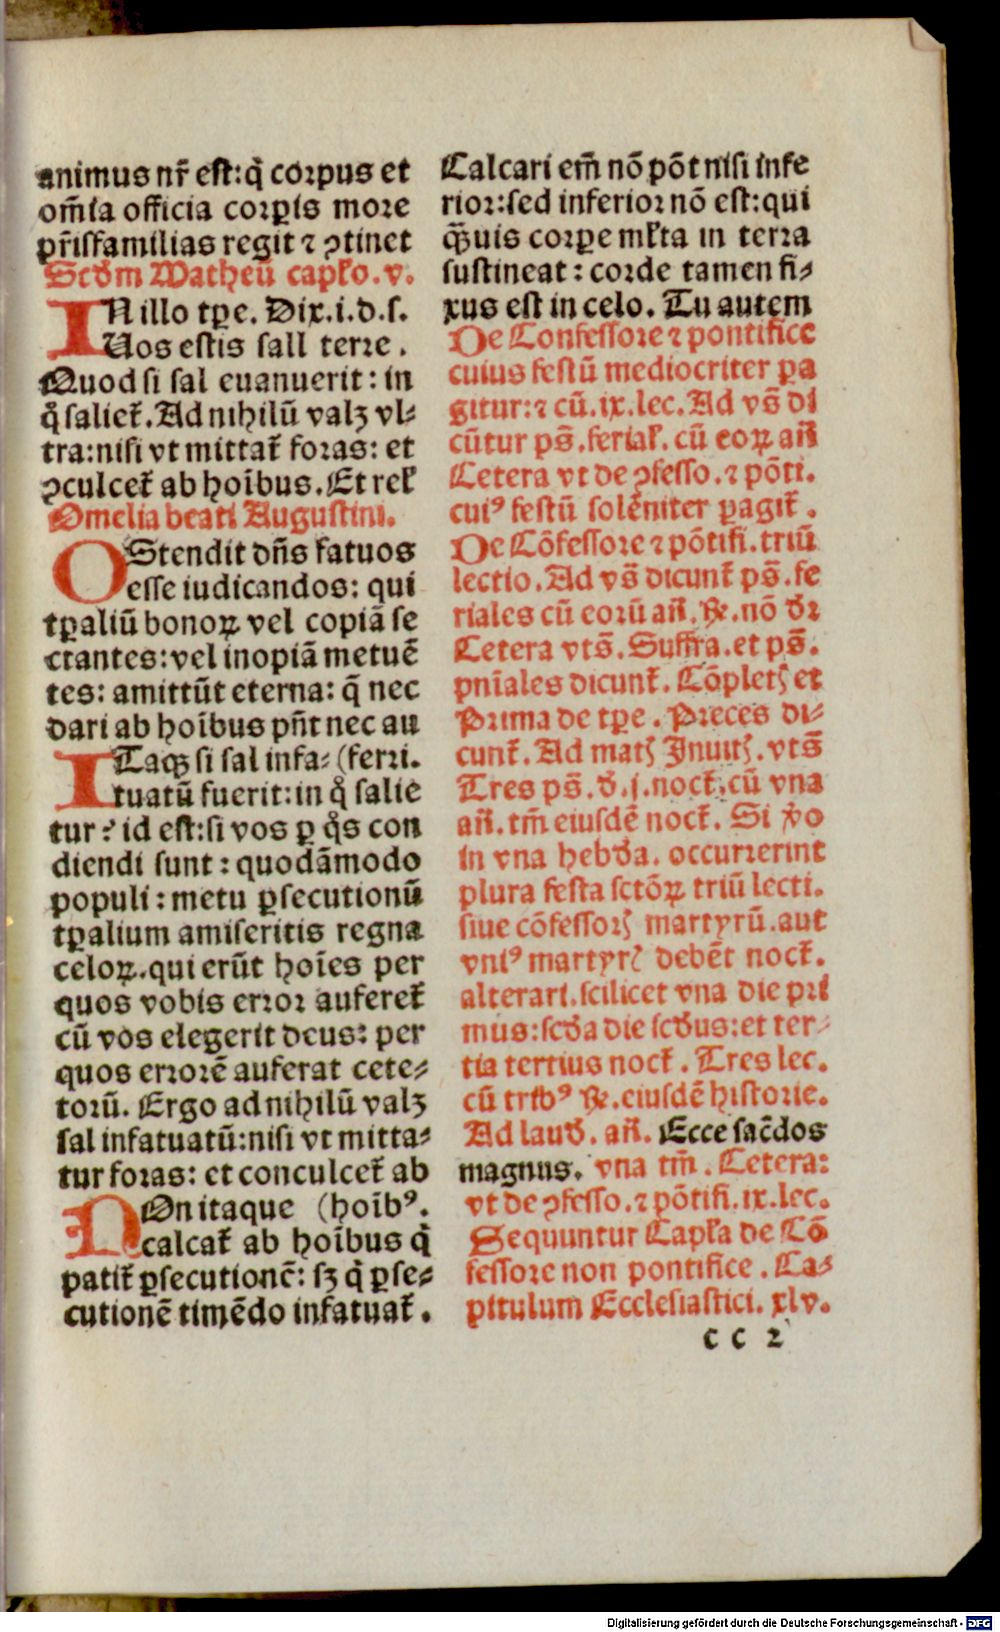 animus nr̄ est:q̇ corpus et
om̄ia officia corꝑis more
pr̄isfamilias regit ⁊ ꝯtinet
Scd̄m Matheū capl̄o.v.
IN illo tꝑe. Dix.i.d.s.
Vos estis sall terre.
Quod si sal euanuerit: in
q̊ saliet᷑. Ad nihilū valꝫ vl⸗
tra:nisi vt mittat᷑ foras: et
ꝯculcet᷑ ab hoībus. Et rel̄
Omelia beati Augustini.
OStendit dn̄s fatuos
esse iudicandos: qui
tꝑaliū bonoꝝ vel copiā se
ctantes:vel inopiā metuē
tes: amittūt eterna: q̄ nec
dari ab hoībus pn̄t nec au
ITaqꝫ si sal infa⸗ (ferri.
tuatū fuerit:in q̊ salie
tur? id est:si vos ꝑ q̊s con
diendi sunt: quodāmodo
populi: metu ꝑsecutionū
tꝑalium amiseritis regna
celoꝝ.qui erūt hoīes per
quos vobis error auferet᷑
cū vos elegerit deus: per
quos errorē auferat cete⸗
torū. Ergo ad nihilū valꝫ
sal infatuatū:nisi vt mitta⸗
tur foras: et conculcet᷑ ab
NOn itaque (hoībꝰ.
calcat᷑ ab hoībus q̇
patit᷑ ꝑsecutionē: sꝫ q̇ ꝑse⸗
cutionē timēdo infatuat᷑.
Calcari em̄ nō pōt nisi infe
rior:sed inferior nō est:qui
qͣuis corꝑe ml̄ta in terra
sustineat: corde tamen fi⸗
xus est in celo. Tu autem
De Confessore ⁊ pontifice
cuius festū mediocriter pa
gitur:⁊ cū.ix.lec. Ad vs̄ di
cūtur ps̄.ferial̄. cū eoꝝ an̄
Cetera vt de ꝯfesso.⁊ pōti.
cuiꝰ festū solēniter ꝑagit᷑.
De Cōfessore ⁊ pōtifi.triū
lectio. Ad vs̄ dicunt᷑ ps̄.fe
riales cū eorū an̄.℟.nō dr̄
Cetera vts̄. Suffra.et ps̄.
pn̄iales dicunt᷑. Cōpletꝭ et
Prima de tꝑe. Preces di⸗
cunt᷑. Ad matꝭ Inuitꝭ.vts̄
Tres ps̄.d̄.j.noct᷑.cū vna
an̄.tm̄ eiusdē noct᷑. Si v̊o
in vna hebd̄a. occurrerint
plura festa sctōꝝ triū lecti.
siue cōfessorꝭ martyrū.aut
vniꝰ martyrꝭ debēt noct᷑.
alterari.scilicet vna die pri
mus:scd̄a die scd̄us:et ter⸗
tia tertius noct᷑. Tres lec.
cū tribꝰ ℟.eiusdē historie.
Ad laud̄. an̄. Ecce sac̄dos
magnus. vna tm̄. Cetera:
vt de ꝯfesso.⁊ pōtifi.ix.lec.
Sequuntur Capl̄a de Cō
fessore non pontifice. Ca⸗
pitulum Ecclesiastici. xlv.
c c 2
Digitalisierung gefördert durch die Deutsche Forschungsgemeinschaft - DFG